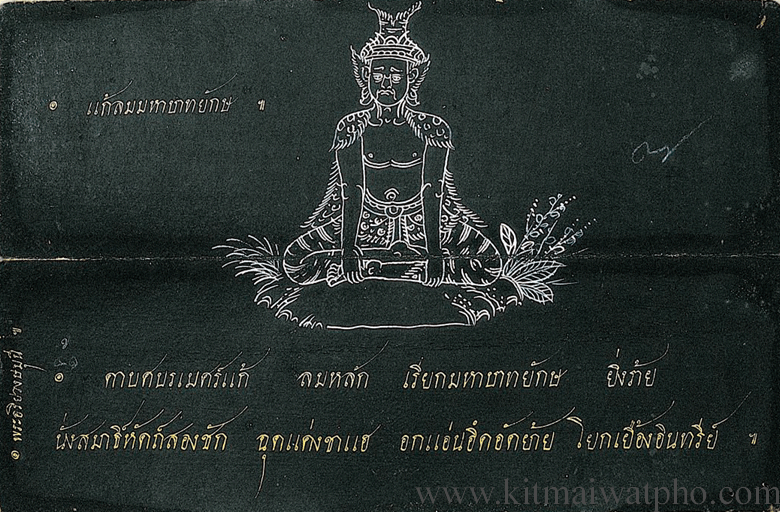 ๏ แก้ลมมหาบาทยักษ ๚
๏ ดาบศบรเมศร์แก้ ลมหลัก เรียกมหาบาทยักษ ยิ่งร้าย
นั่งสมาธิ์หัตถ์สองชัก ฉุดแค่งขาแฮ อกแอ่นฮึดอัดย้าย โยกเยื้องอินทรีย์ ๚
๏ พระอริยวงษมุนี ๚
www.kitmaiwatpho.com